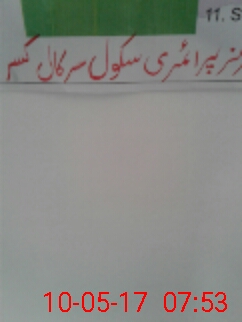 11. S
پرائمری سکول سرگال کسر
10-05-17 07:53